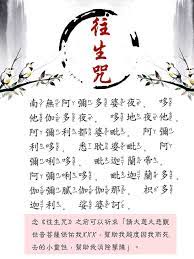 往生咒
南無阿彌多婆夜。哆
他伽多夜。哆地夜他。
阿彌利都婆毗。阿
彌利哆。悉耽婆毗。
阿彌利哆。毗迦蘭帝。
阿彌利哆。毗迦蘭多。
伽彌膩伽伽那。枳多
迦利娑婆訶。
念《往生咒》之前可以祈求「請大慈大悲觀
世音菩薩保佑我XXX，幫助我超度因我而死
去的小靈性，幫助我消除孽障」。